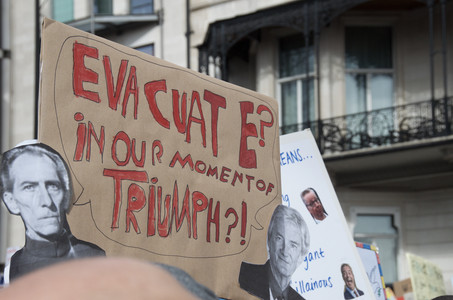 EVACUATE?
IN OUR MOMENT OF
TRIUMPH?!
EANS...
gant
illainous